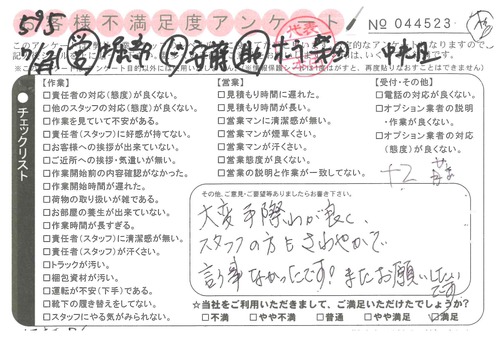 お客様不満足度アンケート
No 044523
595
【作業】
□責任者の対応(態度)が良くない。
□他のスタッフの対応(態度)が良くない。
□作業を見ていて不安がある。
□責任者(スタッフ)に好感が持てない。
□お客様への挨拶が出来ていない。
□ご近所への挨拶・気遣いが無い。
□作業開始前の内容確認がなかった。
□作業開始時間が遅れた。
□荷物の取り扱いが雑である。
□お部屋の養生が出来ていない。
□作業時間が長すぎる。
□責任者(スタッフ)に清潔感が無い。
□責任者(スタッフ)が汗くさい。
□トラックが汚い。
□梱包資材が汚い。
□運転が不安(下手)である。
□靴下の履き替えをしてない。
□スタッフにやる気がみられない。
●チェックリスト
【営業】
□見積もり時間に遅れた。
□見積もり時間が長い。
□営業マンに清潔感が無い。
□営業マンが煙草くさい。
□営業マンが汗くさい。
□営業態度が良くない。
□営業の説明と作業が一致してない。
【受付・その他】
□電話の対応が良くない。
□オプション業者の説明
・作業が良くない。
□オプション業者の対応
(態度)が良くない。
その他、ご意見・ご要望等ありましたらお書き下さい。
大変手際わが良く、
スタッフの方もさわやかで
言う事なかったです！またお願いしたい
です
☆当社をご利用いただきまして、ご満足いただけたでしょうか?
□不満 □やや不満 □普通 □やや満足 □満足